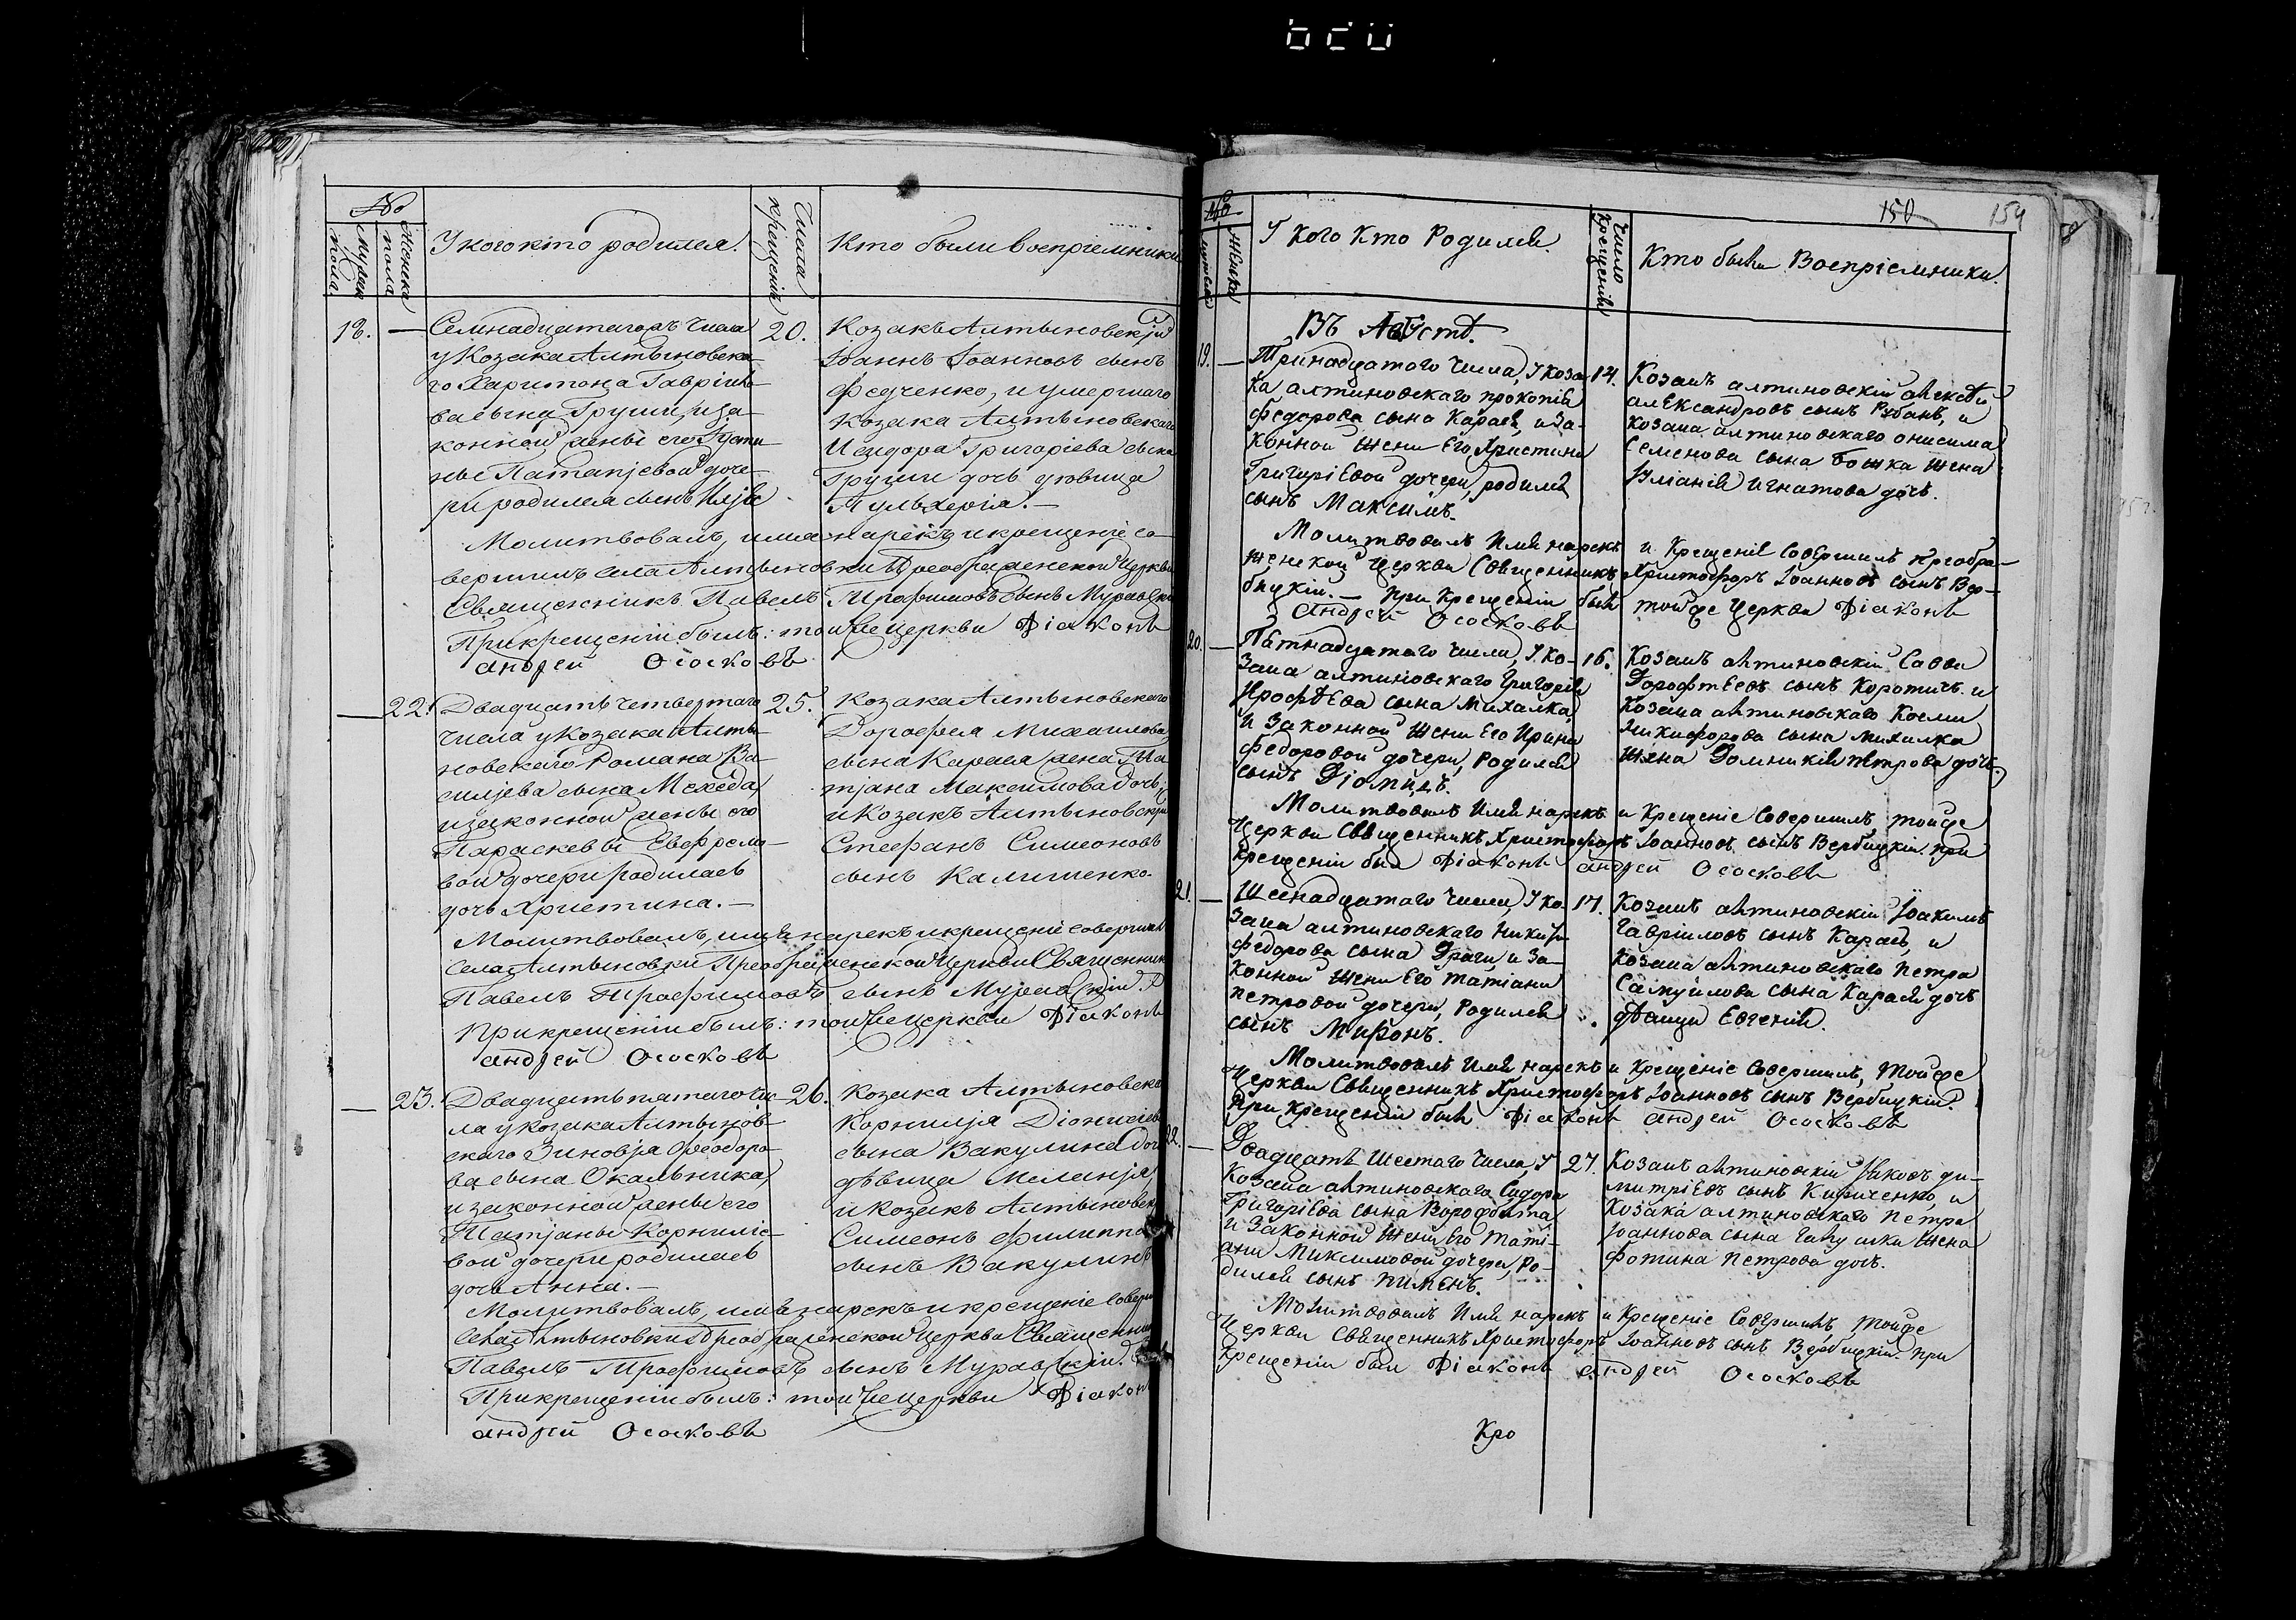 №
Мужеска пола
Женска пола
У кого кто родился.
Числа крещенія
Кто были воспріемники
18.
Семнадцатагоръ числа
у Козака Алтыновска-
го Харитона Гавріило-
ва сына Груши, и за-
конной жены его Іусти-
ны Патапіевой доче-
ри родился сынъ Илія
20.
Козакъ Алтыновскій
Іоаннъ Іоанновъ сынъ
Федченко, и умершаго
Козака Алтыновскаго
Исидора Григоріева сына
Груши дочь удовица
Пульхерія.
Молитвовалъ, имя нарекъ и крещеніе со-
вершилъ села Алтыновки Преображенской Церкви
Священникъ Павелъ Трофимовъ сынъ Муравскій
При крещеніи былъ: той же церкви Діаконъ
Андрей Ососковъ
22.
Двадцать четвертаго
числа у Козака Алты-
новскаго Романа Ва-
силіева сына Мехеда,
и законной жены его
Параскевы Евфремо-
вой дочери родилась
дочь Христина.
25.
Козака Алтыновскаго
Дорофея Михаилова
сына Карася жена Та-
тіана Максимова дочь,
и Козакъ Алтыновскій
Стефанъ Симеоновъ
сынъ Калишенко
Молитвовалъ, имя нарекъ и крещеніе совершилъ
села Алтыновки Преображенской Церкви Священникъ
Павелъ Трофимовъ сынъ Муравскій.
При крещеніи былъ: той же церкви Діаконъ
Андрей Ососковъ
23.
Двадцать пятаго чи-
сла у козака Алтынов-
скаго Зиновія Феодоро-
ва сына Окальника,
и законной жены его
Татіаны Корниліе-
вой дочери родилась
дочь Анна.
26.
Козака Алтыновска
Корнилія Діонисіева
сына Вакулина доч
дѣвица Меланія,
и козакъ Алтыновск
Симеонъ Филиппо
сынъ Вакулинъ
Молитвовалъ, имя нарекъ и крещеніе соверш
села Алтыновки Преображенской Церкви Священни
Павелъ Трофимовъ сынъ Муравскій.
При крещеніи былъ: той же церкви Діаконъ
Андрей Ососковъ
150
154
№
женска
У Кого Кто Родился.
Число Крещенія
Кто были Воспріемники.
Въ Августѣ.
19.
Тринадцатого Числа, У Коза-
ка алтиновскаго прокопія
федорова сына Карася, и За-
конной Жени Его Христини
Григоріевой дочери, родился
сынъ Максимъ.
14.
Козакъ алтиновскій алексѣй
александровъ сынъ Рябанъ, и
козака алтиновскаго онисима
Семенова сына Божка жена
Іуліанія Игнатова дочь.
Молитвовалъ Имя нарекъ и Крещеніе Совершилъ преобра-
женской Церкви Священникъ Христофоръ Іоанновъ сынъ Вер-
бицкій. — При Крещеніи былъ тойже Церкви Діаконъ
Андрей Ососковъ
20.
Пятнадцатаго числа, У Ко-
зака алтиновскаго Григорія
Ерофѣева сына Михалка,
и Законной Жени Его Ирини
федоровой дочери, Родился
сынъ Діомидъ.
16.
Козакъ алтиновскій Савва
Дорофѣевъ сынъ Коротичъ и
Козака алтиновскаго Косми
Никифорова сына михалка
жена Домникія петрова дочь.
Молитвовалъ Имя нарекъ и Крещеніе Совершилъ, тойже
Церкви Священникъ Христофоръ Іоанновъ сынъ Вербицкій. при
Крещеніи был Діаконъ андрей Ососковъ
21.
Шеснадцатаго Числа, У Ко-
зака алтиновскаго Никиты
федорова сына Драги, и За-
конной Жени Его татіани
петровой дочери, Родился
сынъ Миронъ.
17.
Козакъ алтиновскій Іоакимъ
Гавріиловъ сынъ Карась, и
козака алтиновскаго петра
Самуилова сына Карася дочь
дѣвица Евгенія.
Молитвовалъ Имя нарекъ и Крещеніе Совершилъ, Тойже
Церкви Священникъ Христофоръ Іоанновъ сынъ Вербицкій.
При Крещеніи былъ Діаконъ андрей Ососковъ
22.
Двадцать Шестаго Числа, У
Козака алтиновскаго Сидора
Григоріева сына Воробѣта
и Законной Жени Его тати-
ани Максимовой дочери, Ро-
дился сынъ пименъ.
27.
Козакъ алтиновскій Іяковъ ди-
митріевъ сынъ Кириченко, и
Козака алтиновскаго петра
Іоаннова сына жена
фотина петрова дочь.
Молитвовалъ Имя нарекъ и Крещеніе Совершилъ тойже
Церкви Священникъ Христофоръ Іоанновъ сынъ Вербицкій. при
Крещеніи был Діаконъ андрей Ососковъ
Кро